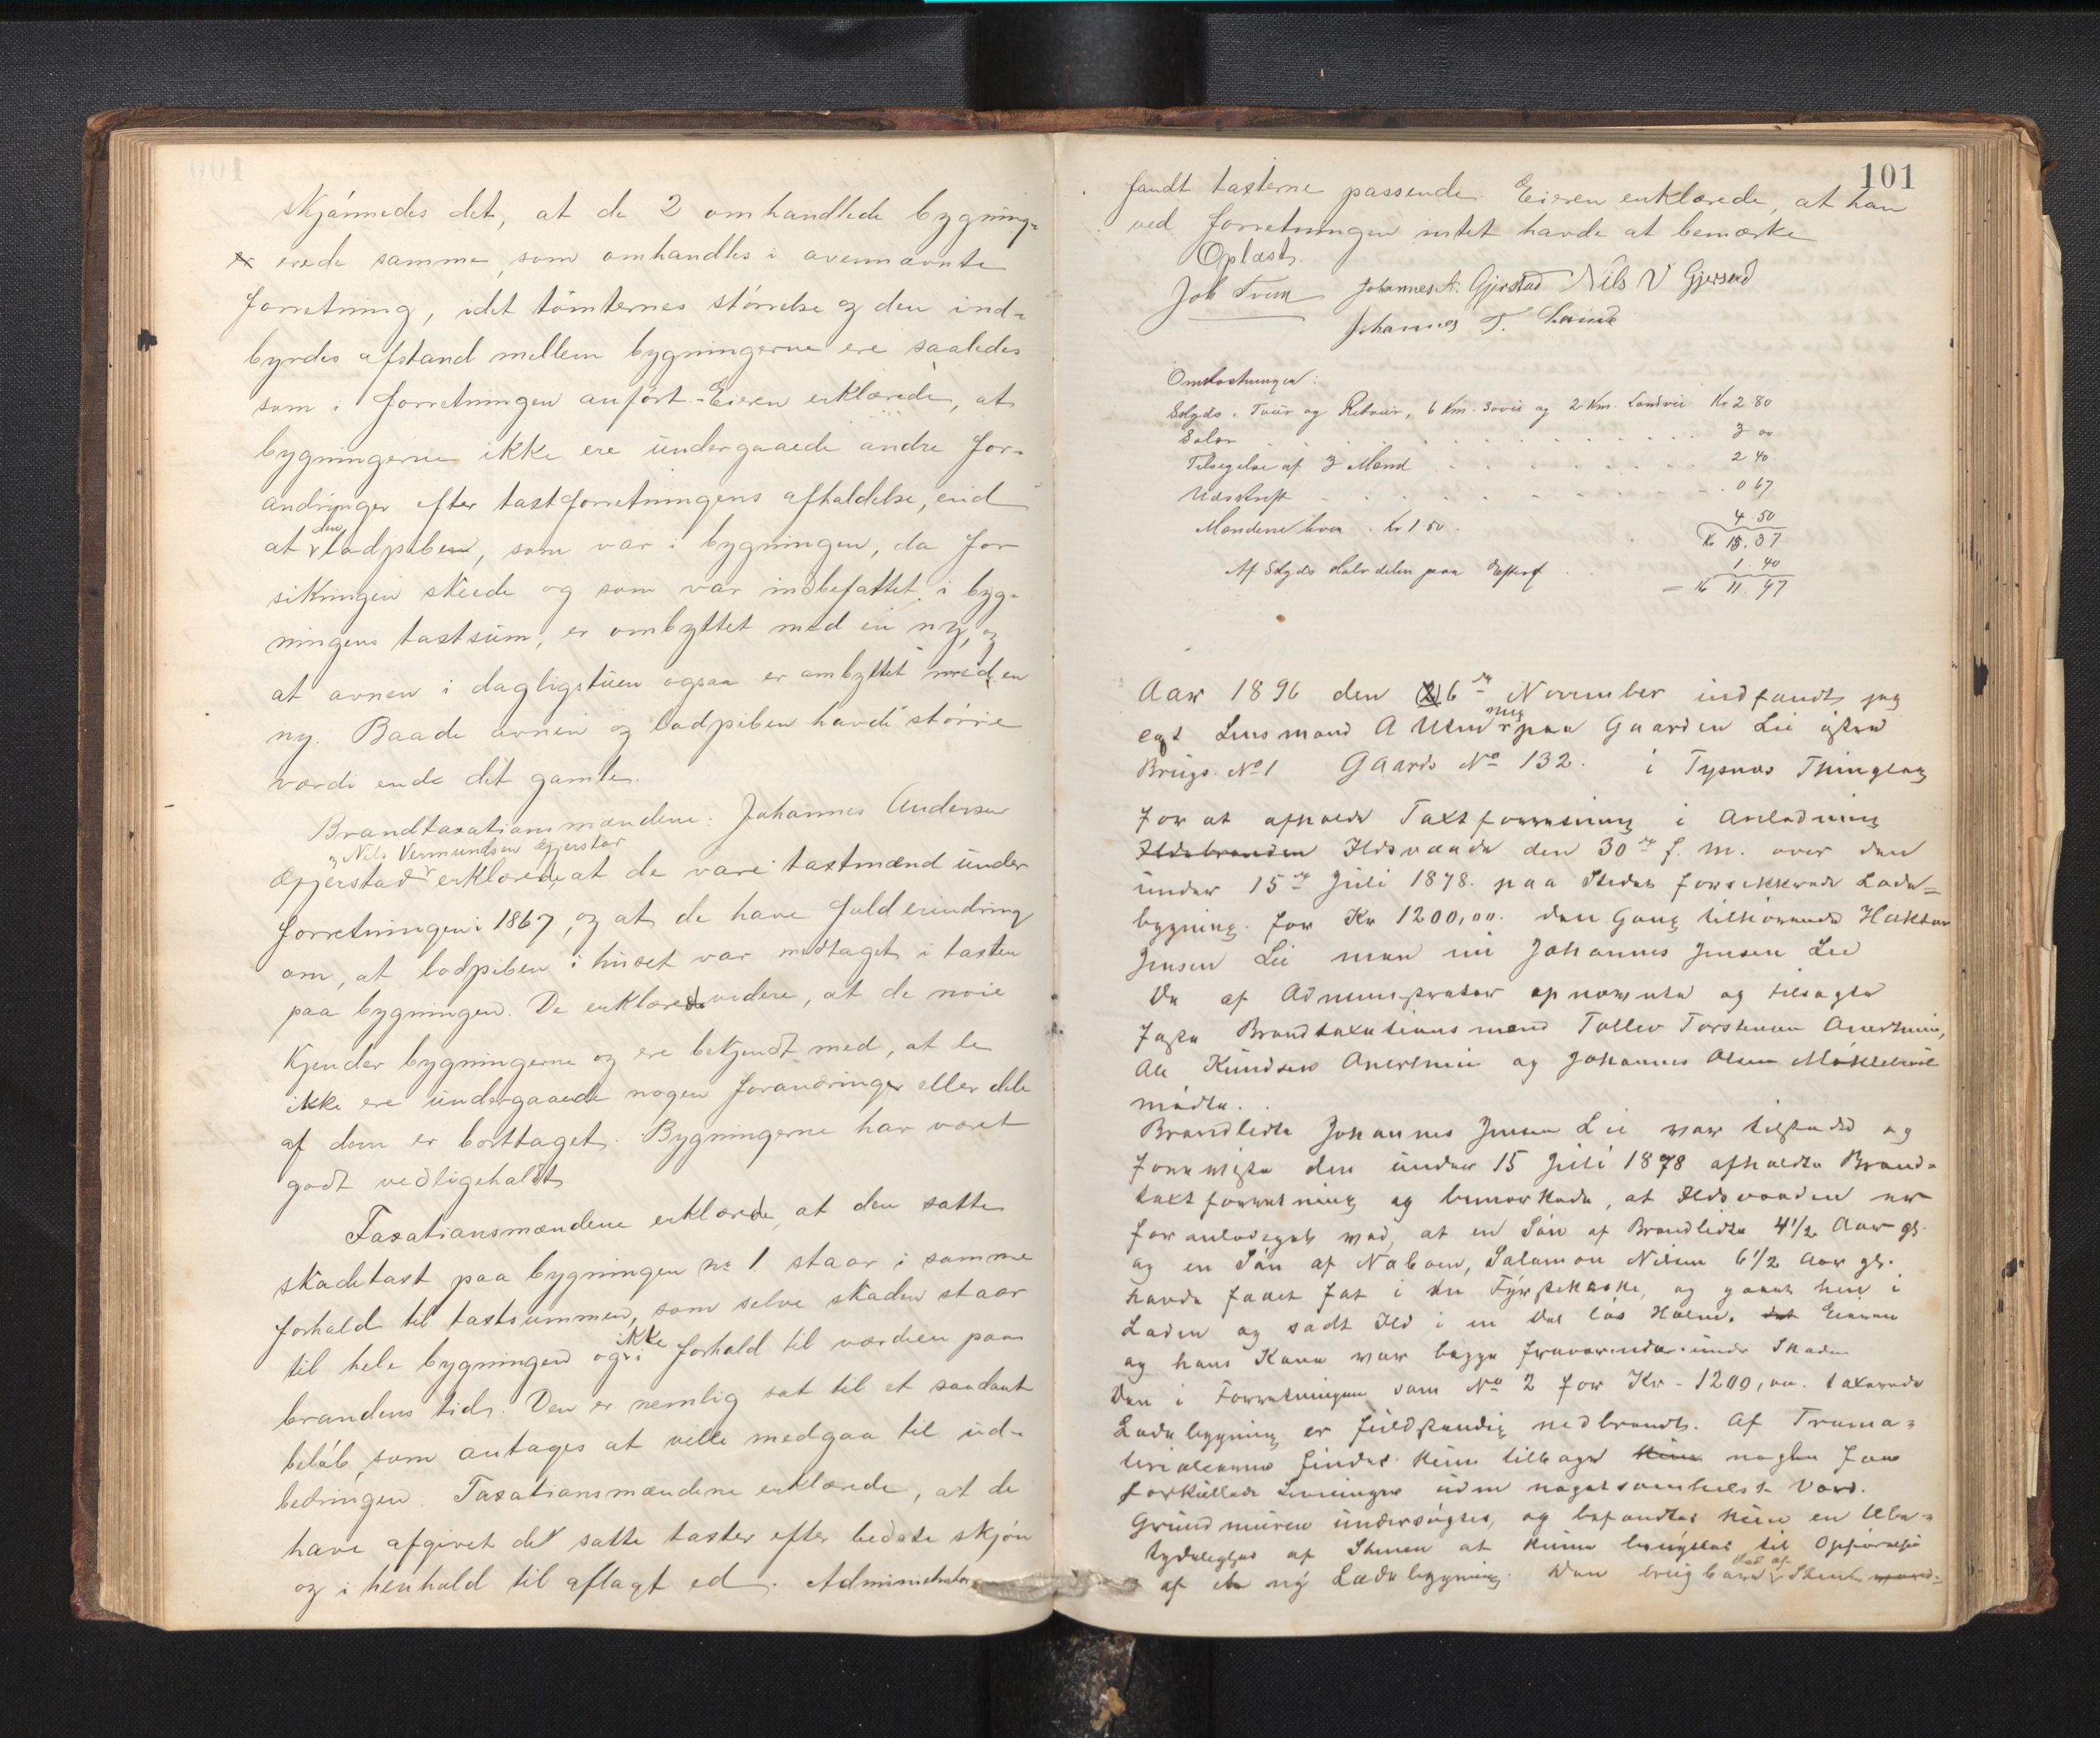 Skjönnedes det, at de 2 omhandlede bygning-
erede samme, som omhandles i ovennævnte
forretning, idet tomternes störrelse og den ind-
byrdes afstand mellem bygningerne ere saaledes
som i forretningen anfört. Eieren erklærede, at
bygningerne ikke ere undergaaede andre for-
andringer efter taxtforretningens afholdelse, end
at den lodpiben, som var i bygningen, da for
sikringen skeede og som var indbefattet i byg-
ningens taxtsum, er ombyttet med en ny, og
at ovnen i dagligstuen ogsaa er ombyttet med en
ny. Baade ovnen og lodpiben havde större
værdi ende det gamle.
Brandtaxationsmændene: Johannes Andersen
og Nils Vermundsen Gjerstad
Gjerstad erklærede, at de vare taxtmænd under
forretningen i 1867, og at de have fuld erindring
om, at lodpiben i huset var medtaget i taxten
paa bygningen. De erklærede videre, at de nöie
kjender bygningerne og ere bekjendt med, at de
ikke ere undergaaede nogen forandringer eller dele
af dem er borttaget. Bygningerne har været
godt vedligeholdt
Taxationsmændene erklærede, at den satte
skadetaxt paa bygningen no 1 staar i samme
forhold til taxtsummen, som selve skaden staar
til hele bygningen og i ikke forhold til værdien paa
brandens tid. Den er nemlig sat til et saadant
belöb, som antages at ville medgaa til ud-
bedringen. Taxationsmændene erklærede, at de
have afgivet det satte taxter efter bedste skjön
og i henhold til aflagt ed. Administrator
101
fandt taxterne passende. Eieren erklærede, at han
ved forretningen intet havde at bemærke
Oplæst.
Johannes A. Gjerstad Nils V Gjerstad
Johannes T.
Omkostninger:
Skyds. Tour og Retour, 6 Km. Sövei og 2 Km. Landvei Kr 2 80
Salær 3 00
Tilsigelse af 3 Mænd 2 40
Udskrift 0 67
Mændene hver Kr 1 50 4.50
Kr 13.37
Af Skyds Halvdelen paa 1.40
= Kr 11.97
Aar 1896 den 6te November indfandt jeg
cst Lensmand A mig paa Gaarden Lie östre
Brugs No 1 Gaards No 132. i Tysnæs Thinglag
for at afholde Taxtforretning i Anledning
Ildebranden Ildsvaade den 30te f. M. over den
under 15de Juli 1878. paa Stedet forsikkrede Lade-
bygning for Kr 1200,00. den Gang tilhörende Haktor
Jensen Lie men nu Johannes Jensen Lie
Da af Administrator opnævnte og tilsagte
faste Brandtaxationsmænd Tollev Torstensen
Ole Knudsen og Johannes Olsen
mödte.
Brandlidte Johannes Jensen Lie var tilstede og
foreviste den under 15 Juli 1878 afholdte Brand-
taxtforretning og bemærkede, at Ildsvaaden var
foranlediget ved, at en Sön af Brandlidte 4 1/2 Aar gl.
og en Sön af Naboen, Salamon Nilsen 6 1/2 Aar gl.
havde faaet fat i en Fyrstikæske, og gaaet hen i
Laden og sadt Ild i en Del lös Halm. Eieren
og hans Kone var begge fraværende under Skaden
Den i Forretningen som No 2 for Kr - 1200,00. taxerede
Ladebygning er fuldstændig nedbrændt. Af Træma-
terialerne findes kun tilbage nogle faa
forkullede Levninger uden nogetsomhelst Værd.
Grundmuren undersögtes, og befandtes kun en Ube-
tydelighed af Stenen at kunne benyttes til Opförelse
af en ny Ladebygning. Den brugbare Del af Stenen